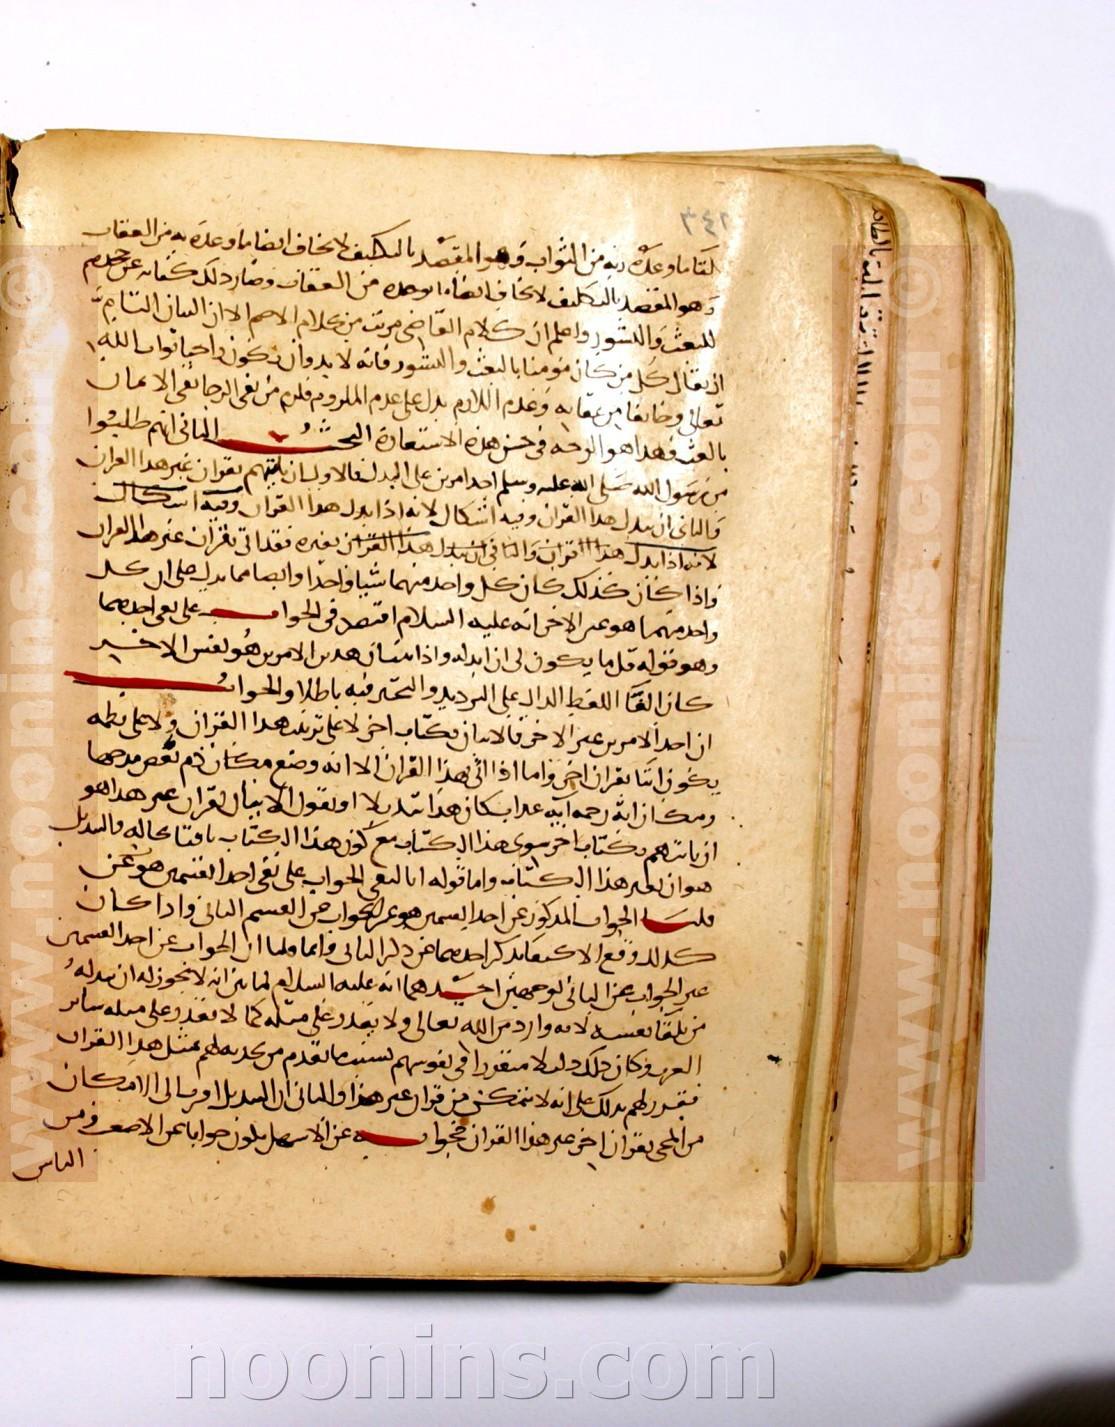 ٢٤٣
لقاء ما وعده ربه من الثواب وهو المقصد بالتكليف لا يخاف ايضا ما وعده به من العقاب
وهو المقصد بالتكليف لا يخاف ايضا ما يوعده من العقاب وصار ذلك كناية عن جحدهم
للبعث والنشور واعلم ان كلام القاضي قريب من كلام الاصم الا ان البيان التام
ان يقال كل من كان مومنا بالبعث والنشور فانه لا بد وان يكون راجيا ثواب الله
تعالى وخائفا من عقابه وعدم اللازم يدل على عدم الملزوم فلزم من نفى الرجا نفى الايمان
بالبعث فهذا هو الوجه في حسن هذه الاستعارة البحث الثاني انهم طلبوا
من رسول الله صلى الله عليه وسلم احد امرين على البدل فالاول ان ياتيهم بقران غير هذا القران
والثاني ان يبدل هذا القران وفيه اشكال لانه اذا بدل هذا القران وفيه اشكال
لانه اذا بدل هذا القران والثاني ان يبدل هذا القران بغيره فقد اتى بقران غير هذا القران
واذا كان كذلك كان كل واحد منهما شيا واحدا وايضا مما يدل على ان كل
واحد منهما هو عين الاخر انه عليه السلام اقتصر في الجواب على نفى احدهما
وهو قوله قل ما يكون لي ان ابدله واذا ثبت ان هذين الامرين هو نفس الاخر
كان القا اللفظ الدال على الترديد والتخيير فيه باطلا والجواب
ان احد الامرين غير الاخر فالاتيان بكتاب اخر لا على ترتيب هذا القران ولا على نظمه
يكون اتيا بقران اخر واما اذا اتى بهذا القران الا انه وضع مكان ذم بعض مدحها
ومكان اية رحمة آية عذاب كان هذا تبديلا او نقول الاتيان بقران غير هذا هو
ان ياتيهم بكتاب اخر سوى هذا الكتاب مع كون هذا الكتاب باقيا بحاله والتبديل
هو ان يغير هذا الكتاب واما قوله انا اكتفى الجواب على نفى احد القسمين هو عن
قلنا الجواب المذكور عن احد القسمين هو عين الجواب عن القسم الثاني واذا كان
كذلك وقع الاكتفا بذكر احدهما عن ذكر الثاني وانما قلنا ان الجواب عن احد القسمين
عين الجواب عن الثاني لوجهين احدهما انه عليه السلام لما بين انه لا يجوز له ان يبدله
من تلقا نفسه لانه وارد من الله تعالى ولا يقدر على مثله كما لا يقدر على مثله ساير
العرب وكان ذلك متقررا في نفوسهم بسبب ما تقدم من تحديه لهم بمثل هذا القران
فقد دلهم بذلك على انه لا يتمكن من قران غير هذا والثاني ان التبديل اقرب الى الامكان
من المجى بقران اخر غير هذا القران فجوابه عن الاسهل يكون جوابا عن الاصعب ومن
الناس
www.noonins.com ©
www.noonins.com ©
noonins.com